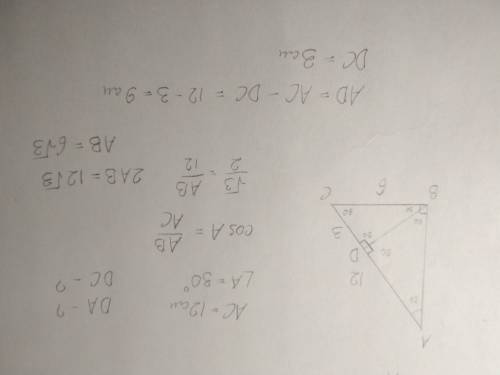 A
30
B
60
30
90
90
D
12
3
6
C
60
AC = 12см
∠A = 30°
DA - ?
DC - ?
cos A = AB/AC
√3/2 = AB/12
2AB = 12√3
AB = 6√3
AD = AC - DC = 12 - 3 = 9см
DC = 3см